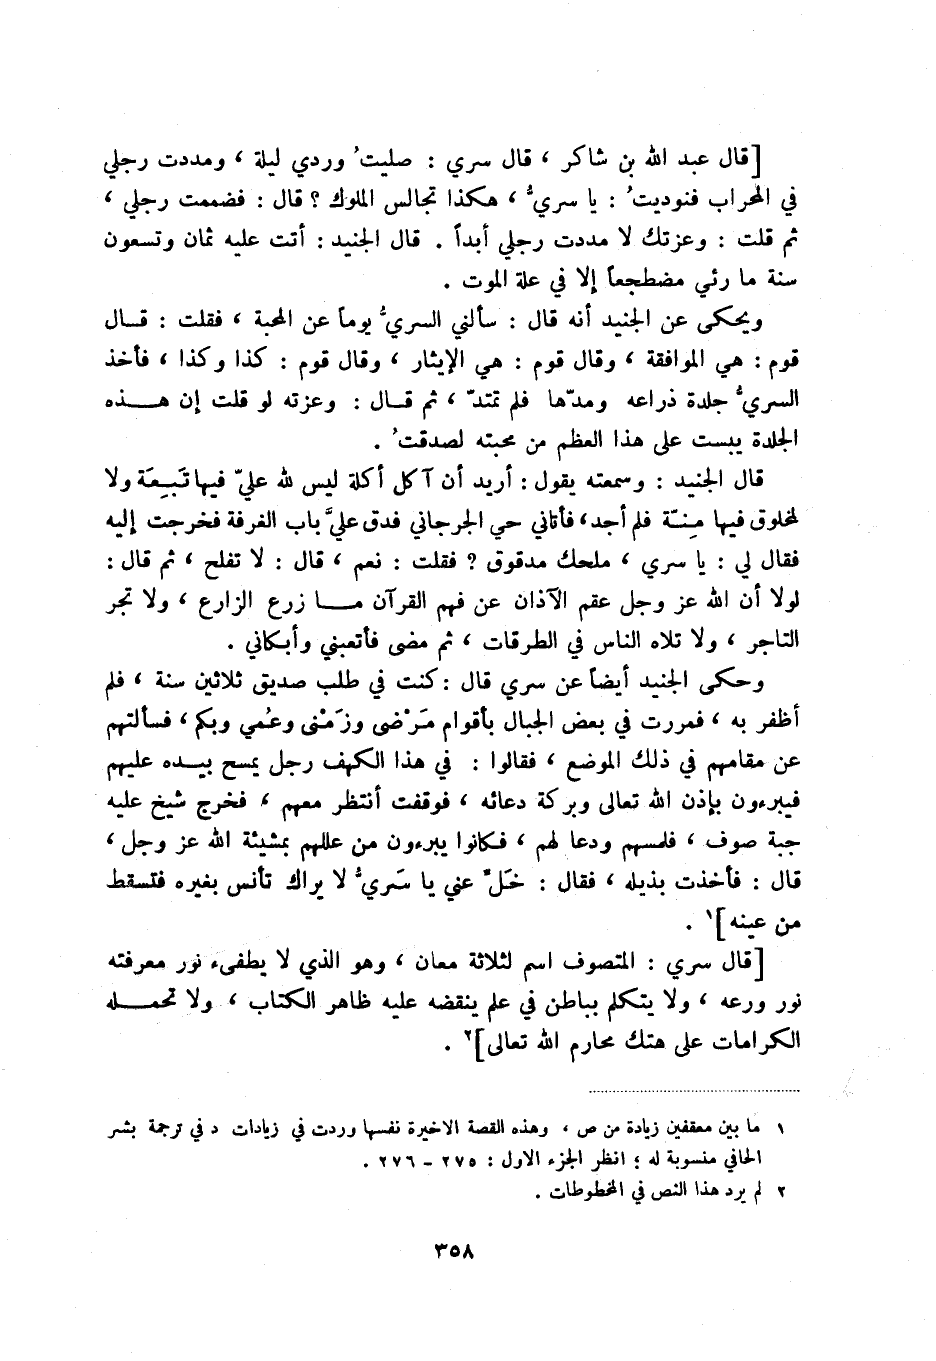 [قال عبد الله بن شاكر ، قال سري : صليتُ وردي ليلة ، ومددت رجلي
في المحراب فنوديتُ : يا سريُّ ، هكذا تجالس الملوك ؟ قال : فضممت رجلي ،
ثم قلت : وعزتك لا مددت رجلي أبداً . قال الجنيد : أتت عليه ثمان وتسعون
سنة ما رئي مضطجعاً إلا في علة الموت .
ويحكى عن الجنيد أنه قال : سألني السريُّ يوماً عن المحبة ، فقلت : قـال
قوم : هي الموافقة ، وقال قوم : هي الإيثار ، وقال قوم : كذا وكذا ، فأخذ
السريُّ جلدة ذراعه ومدّها فلم تمتدّ ، ثم قـال : وعزته لو قلت إن هـــذه
الجلدة يبست على هذا العظم من محبته لصدقتُ .
قال الجنيد : وسمعته يقول : أريد أن آكل أكلة ليس لله عليّ فيها تَبِعَة ولا
لمخلوق فيها مِنّة فلم أجد، فأتاني حي الجرجاني فدق عليَّ باب الغرفة فخرجت إليه
فقال لي : يا سري ، ملحك مدقوق ? فقلت : نعم ، قال : لا تفلح ، ثم قال :
لولا أن الله عز وجل عقم الآذان عن فهم القرآن مــا زرع الزارع ، ولا تجر
التاجر ، ولا تلاه الناس في الطرقات ، ثم مضى فأتعبني وأبكاني .
وحكى الجنيد أيضاً عن سري قال : كنت في طلب صديق ثلاثين سنة ، فلم
أظفر به ، فمررت في بعض الجبال بأقوام مَرْضى وزَمْنى وعُمي وبكم ، فسألتهم
عن مقامهم في ذلك الموضع ، فقالوا : في هذا الكهف رجل يمسح بيــده عليهم
فيبرءون بإذن الله تعالى وبركة دعائه ، فوقفت أنتظر معهم ، فخرج شيخ عليه
جبة صوف ، فلمسهم ودعا لهم ، فكانوا يبرءون من عللهم بمشيئة الله عز وجل ،
قال : فأخذت بذيله ، فقال : خَلِّ عني يا سَريُّ لا يراك تأنس بغيره فتسقط
من عينه]١ .
[قال سري : المتصوف اسم لثلاثة معان ، وهو الذي لا يطفىء نور معرفته
نور ورعه ، ولا يتكلم بباطن في علم ينقضه عليه ظاهر الكتاب ، ولا تحمــله
الكرامات على هتك محارم الله تعالى]٢ .
١ ما بين معقفين زيادة من ص ، وهذه القصة الاخيرة نفسها وردت في زيادات د في ترجمة بشر
الحافي منسوبة له ؛ انظر الجزء الاول : ٢٧٥ - ٢٧٦ .
٢ لم يرد هذا النص في المخطوطات .
٣٥٨